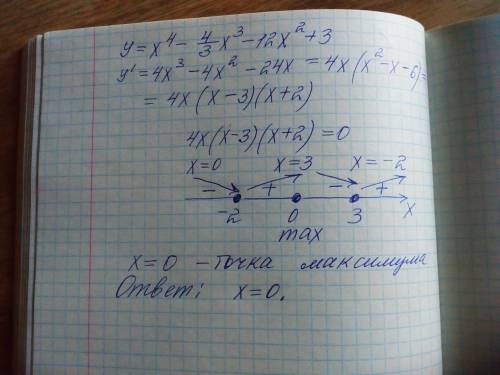 y = x⁴ - 4/3 x³ - 12x² + 3
y' = 4x³ - 4x² - 24x = 4x(x² - x - 6) =
= 4x(x-3)(x+2)
4x(x-3)(x+2) = 0
x=0 x=3 x=-2
- + - +
-2 0 3 x
max
x=0 - точка максимума
Ответ: x=0.